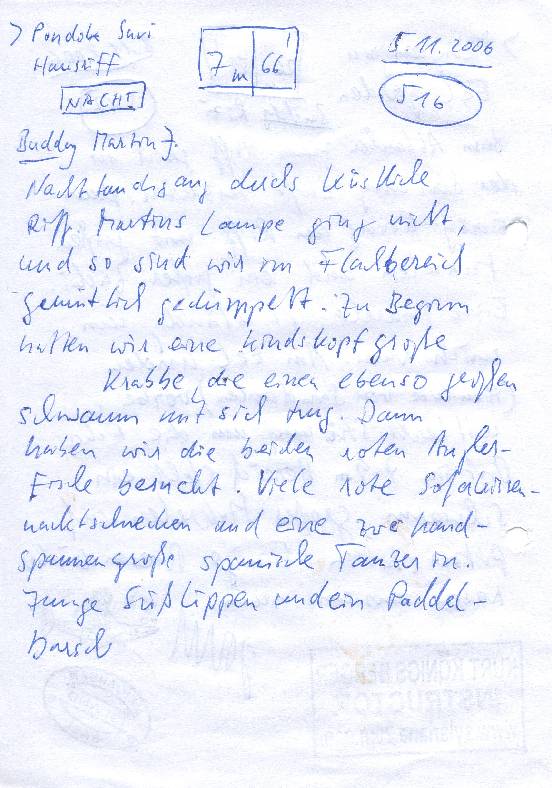 > Pondok Sari
Hausriff
NACHT
7m 66'
5.11.2006
516
Buddy Martin J.
Nachttauchgang durchs köstliche
Riff. Martins Lampe ging nicht,
und so sind wir im Flachbereich
gemütlich gedümpelt. Zu Beginn
hatten wir eine kindskopfgroße
Krabbe, die einen ebenso großen
Schwamm mit sich trug. Dann
haben wir die beiden roten Angler-
Fische besucht. Viele rote Sofakissen-
nacktschnecken und eine zwe hand-
spannengroße spanische Tänzerin.
Junge Süßlippen und ein Paddel-
barsch
INSTRUCTOR